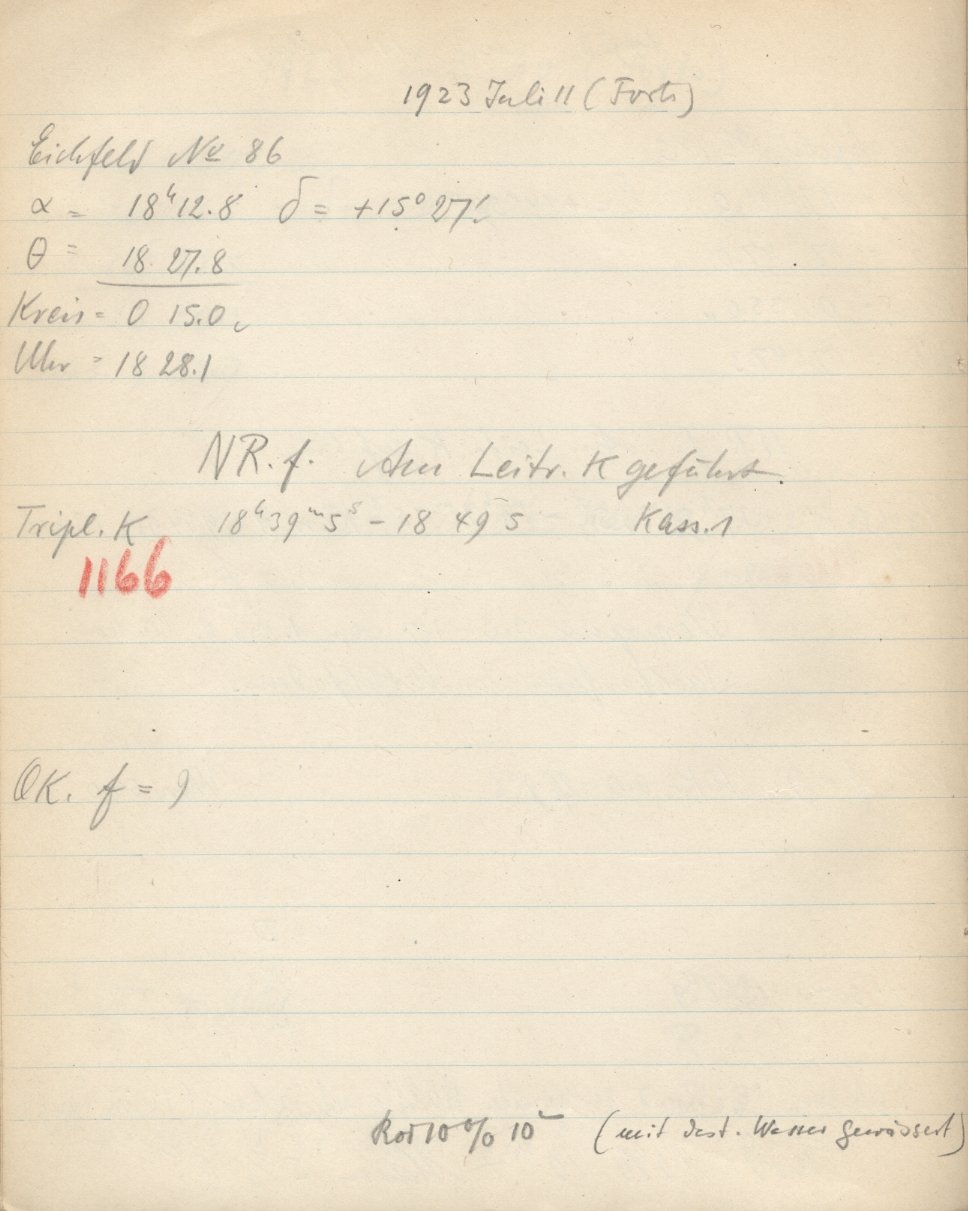 1923 Juli 11 (Forts)
Eichfeld No 86
α = 18ʰ12.8 δ = +15°27'
θ = 18 27.8
Kreis = 0 15.0
Uhr = 18 28.1
NR. f. Am Leitr. K geführt.
Tripl. K 18ʰ39ᵐ5ˢ - 18 49 5 Kass. 1
1166
OK. f = 9
Rod 10% 10ᵐ (mit dest. Wasser gewässert)